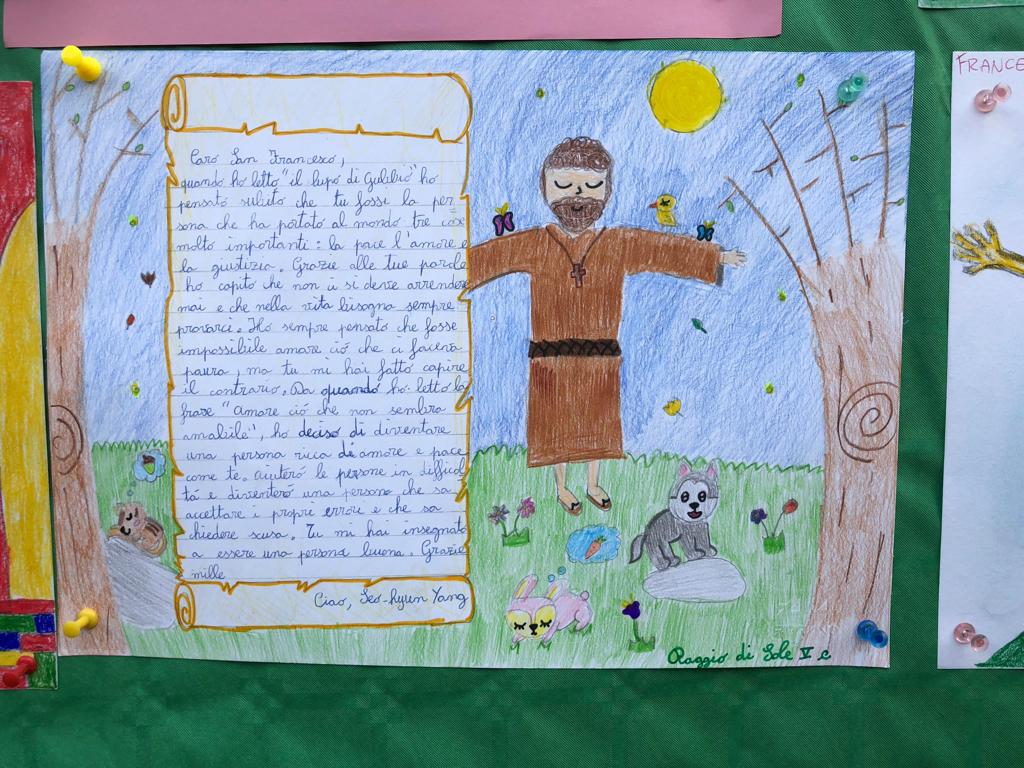 Caro San Francesco,
quando ho letto "il lupo di Gubbio" ho
pensato subito che tu fossi la per
sona che ha portato al mondo tre cose
molto importanti: la pace l'amore e
la giustizia. Grazie alle tue parole
ho capito che non ci si deve arrendere
mai e che nella vita bisogna sempre
provarci. Ho sempre pensato che fosse
impossibile amare ciò che ci faceva
paura, ma tu mi hai fatto capire
il contrario. Da quando ho letto la
frase "Amare ciò che non sembra
amabile", ho deciso di diventare
una persona ricca di amore e pace
come te. Aiuterò le persone in difficol
tà e diventerò una persona che sa
accettare i propri errori e che sa
chiedere scusa. Tu mi hai insegnato
a essere una persona buona. Grazie
mille
Ciao, Seo-hyun Yang
Raggio di Sole V C
FRANCE